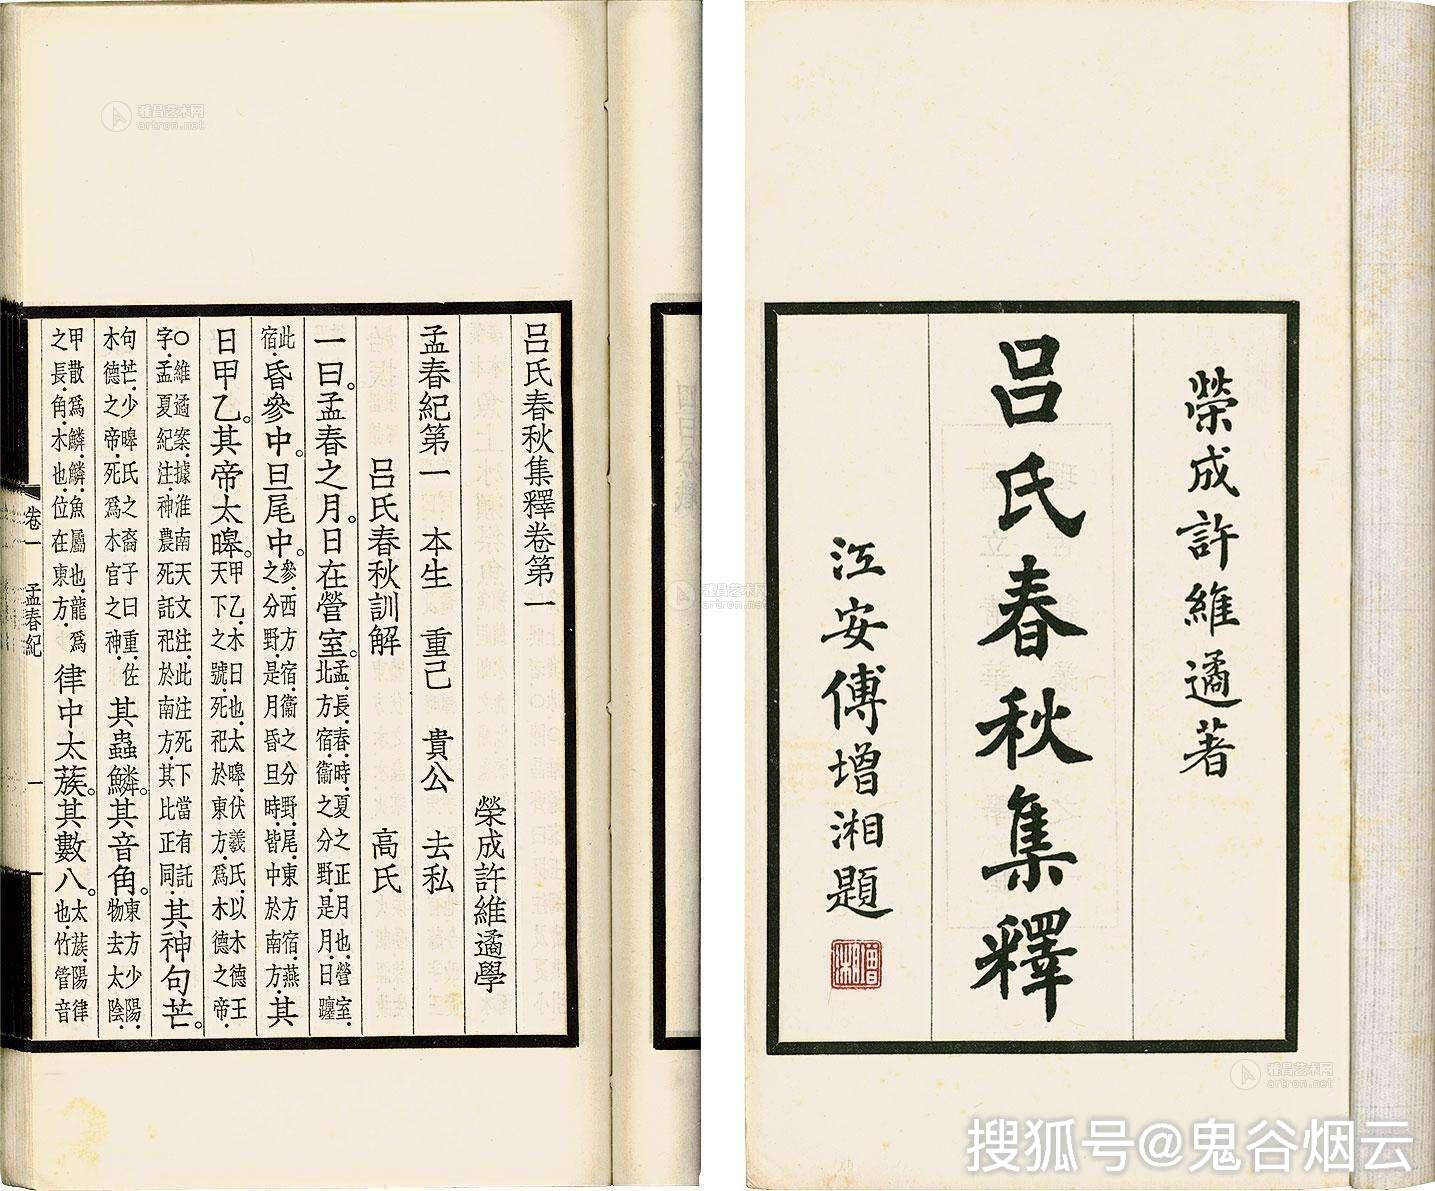 榮成許維遹著
呂氏春秋集釋
江安傅增湘題
增湘
呂氏春秋集釋卷第一
榮成許維遹學
孟春紀第一 本生 重己 貴公 去私
呂氏春秋訓解 高氏
一曰。孟春之月。日在營室。孟.長.春.時.夏之正月也.營室.北方宿.衞之分野.是月.日躔
此宿.昏參中。旦尾中。參.西方宿.衞之分野.尾.東方宿.燕之分野.是月昏旦時.皆中於南方.其
日甲乙。其帝太皞。甲乙.木日也.太皞.伏羲氏.以木德王天下之號.死祀於東方.爲木德之帝.
○維遹案.據淮南天文注.此注死下當有託字.孟夏紀注.神農死託祀於南方.其比正同.其神句芒。
句芒.少皞氏之裔子曰重.佐木德之帝.死爲木官之神.其蟲鱗。其音角。東方少陽.物去太陰.
甲散爲鱗.鱗.魚屬也.龍爲之長.角.木也.位在東方.律中太蔟。其數八。太蔟.陽律也.竹管音
卷一 孟春紀 一
雅昌艺术网
artron.net
雅昌艺术网
artron.net
雅昌艺术网
artron.net
搜狐号@鬼谷烟云